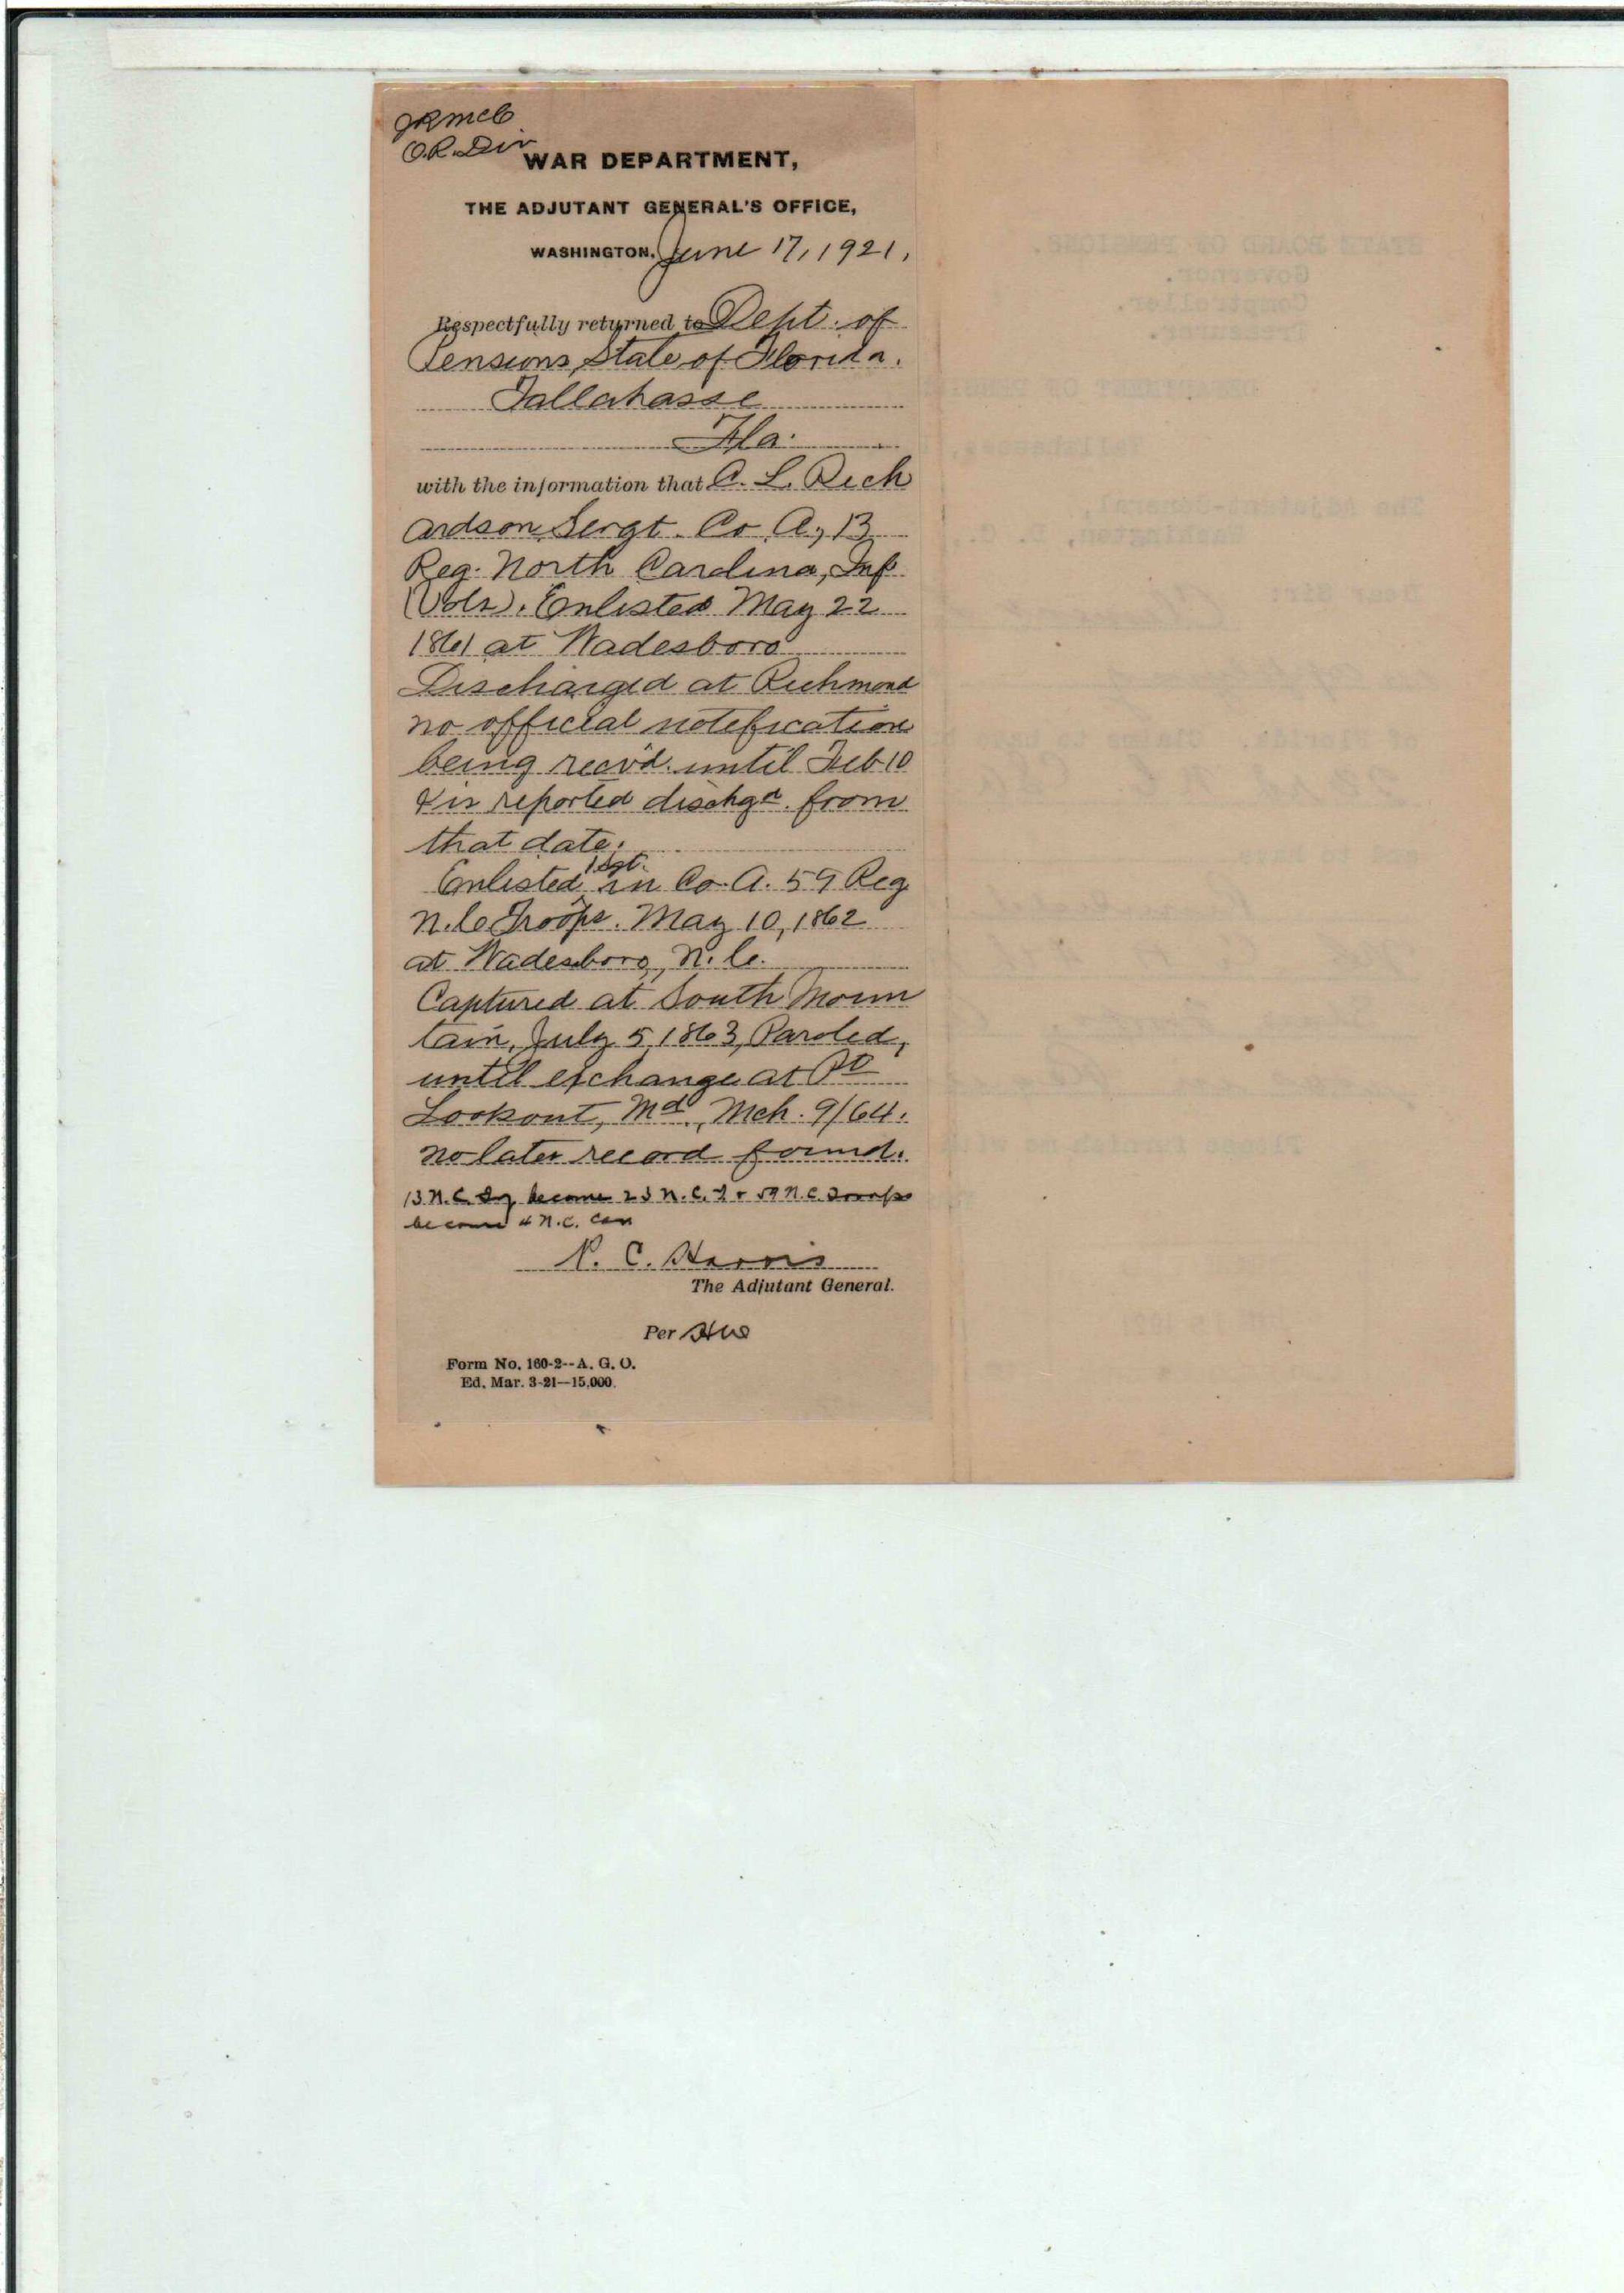 JRMcC
O.R. Div
WAR DEPARTMENT,
THE ADJUTANT GENERAL'S OFFICE,
WASHINGTON, June 17, 1921.
Respectfully returned to Dept. of
Pensions, State of Florida.
Tallahasse
Fla.
with the information that C. L. Rich
ardson, Sergt. Co. A., 13
Reg. North Carolina, Inf.
(Vols). Enlisted May 22
1861 at Wadesboro
Discharged at Richmond
no official notification
being recv'd. until Feb 10
& is reported dischgd. from
that date.
Enlisted 1 Sgt. in Co. A. 59 Reg
N.C. Troops. May 10, 1862
at Wadesboro, N.C.
Captured at South Moun
tain, July 5, 1863, Paroled,
until exchange at Pt
Lookout, Md., Mch. 9/64.
no later record found.
13 N.C. Inf become 23 N.C. I & 59 N.C. Troops
became 4 N.C. Cav
P. C. Harris
The Adjutant General.
Per
Form No. 160-2--A. G. O.
Ed. Mar. 3-21--15,000.
STATE BOARD OF PENSIONS.
Governor.
Comptroller.
Treasurer.
DEPARTMENT OF
Tallahassee,
The Adjutant-General,
Washington, D. C.,
Dear Sir:
of Florida. Claims to have
Please furnish me wi